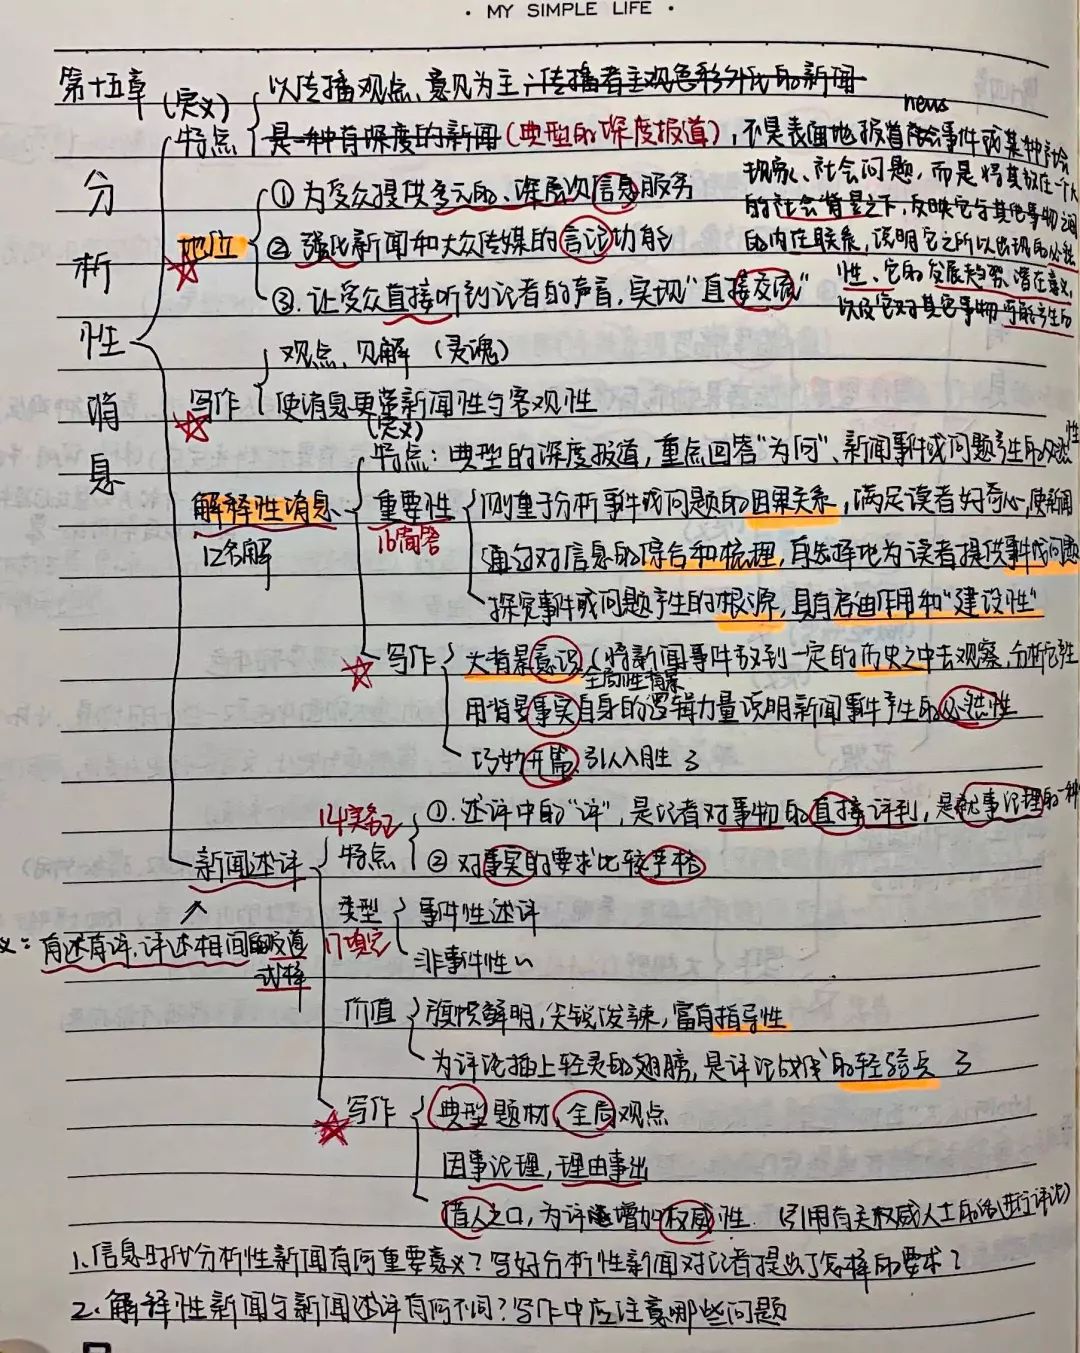 · MY SIMPLE LIFE ·
第十五章
分析性消息
(定义)
特点
以传播观点、意见为主,传播者主观色彩外化的新闻
是一种有深度的新闻(典型的深度报道),不是表面地报道社会事件或某种社会
news
现象、社会问题,而是将其放在一个大
的社会背景之下,反映它与其他事物之间
的内在联系,说明它之所以出现的必然
性、它的发展趋势、潜在意义,
以及它对其它事物可能产生的
地位
① 为受众提供多元的、深层次信息服务
② 强化新闻和大众传媒的言论功能
③. 让受众直接听到记者的声音,实现"直接交流"
写作
观点、见解(灵魂)
使消息更带新闻性与客观性
解释性消息
12名解
(定义)
特点:典型的深度报道,重点回答"为何"、新闻事件或问题产生的必然性
重要性
16简答
侧重于分析事件或问题的因果关系,满足读者好奇心,使新闻
通过对信息的综合和梳理,有选择地为读者提供事件或问题
探究事件或问题产生的根源,具有启迪作用和"建设性"
写作
大背景意识(将新闻事件放到一定的历史之中去观察,分析它产
全局性背景
用背景事实自身的逻辑力量说明新闻事件产生的必然性
巧妙开篇,引人入胜
新闻述评
义:有述有评、评述相间的报道
14实务
特点
①. 述评中的"评",是记者对事物的直接评判,是就事论理的一种
② 对事实的要求比较严格
类型
17填空
事件性述评
非事件性〃
价值
旗帜鲜明,尖锐泼辣,富有指导性
为评论插上轻灵的翅膀,是评论战线的轻骑兵
写作
典型题材,全局观点
因事论理,理由事出
借人之口,为评述增加权威性.(引用有关权威人士的话进行评论)
1、信息时代分析性新闻有何重要意义?写好分析性新闻对记者提出了怎样的要求?
2、解释性新闻与新闻述评有何不同?写作中应注意哪些问题